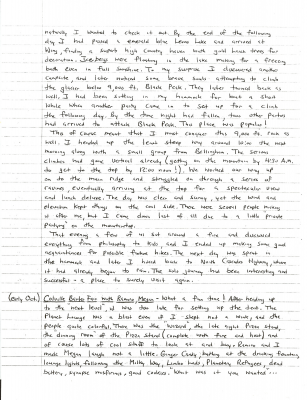 naturally I wanted to check it out. By the end of the following
day I had passed a emerald blue Lake and arrived at
, finding a superb high country haven with gold trees for
decoration. Icebergs were floating in the lake making for a freezing
bath even in full sunshine. To my surprise I discovered another
campsite, and later noticed some brave souls attempting to climb
the glacier below 9,000 ft. Black Peak. They later turned back as
well. I had been sitting in my hammock for about a short
while when another party came in to set up for a climb
the following day. By the time night had fallen, three other parties
had arrived to attack Black Peak. This place was popular!
This of course meant that I must conquer this 9,000 ft. rock as
well. I headed up the steep stony way around in the next
morning along with a small group from Bellingham. The serious
climbers had gone vertical already (getting on the mountain by 4:30 A.M.
to get to the top by 12:00 noon!). We worked our way up
on to the main ridge and struggled on through a series of
ravines, eventually arriving at the top for a spectacular view
and lunch. The day was clear and sunny, yet the wind and
elevation kept things on the cool side. There were several people
after me, but I came down last of all due to a little private
on the mountaintop.
That evening a few of us sat around a fire and discussed
everything from philosophy to kids, and I ended up making some good
acquaintances for possible future hikes. The next day was spent in
the hammock and later I hiked back to North Cascades Highway, where
it had already begun to rain. The solo journey had been interesting and
successful - a place to surely visit again.
(Early Oct.) with Ramiro, Megan - What a fun time! After heading up
to the next level, I was too late for setting up the deal. The
Planet Lounge was a blast even if I slept not a wink, and the
people quite colorful. There was the "wizard", the late night Pizza Stand,
the dining room of the Pizza Stand (complete with fire and heat) and
of course lots of cool stuff to look at and buy. Ramiro and I
made Megan laugh not a little. Ginger Candy, at the drinking fountain,
lounge lights, following the Milky Way, Planetary Refugees, dead
battery, good cookies. What was it you wanted...